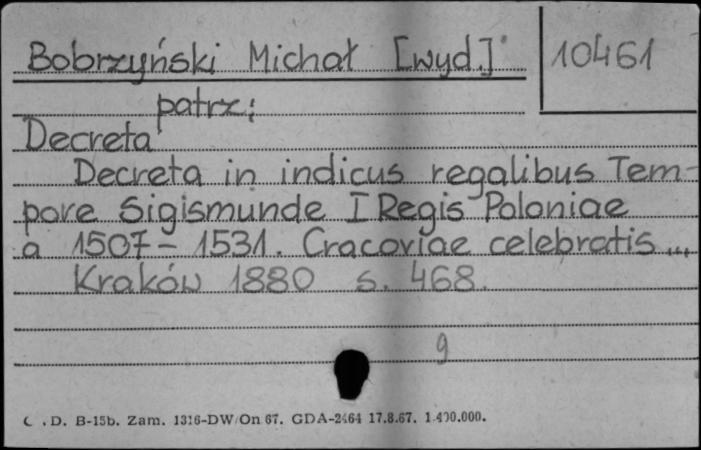 Bobrzyński Michał [wyd.]
10461
patrz:
Decreta
Decreta in indicus regalibus Tem-
pore Sigismunde I Regis Poloniae
a 1507 – 1531. Cracoviae celebratis...
Kraków 1880 s. 468.
9
C.D. B-15b. Zam. 1316-DW/On 67. GDA-2464 17.8.67. 1.400.000.